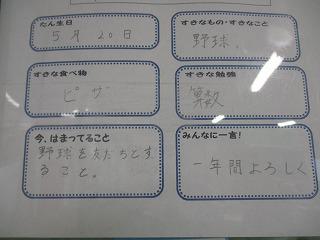 たん生日
5月20日
すきなもの・すきなこと
野球
すきな食べ物
ピザ
すきな勉強
算数
今、はまってること
野球を友だちとす
ること。
みんなに一言!
一年間よろしく